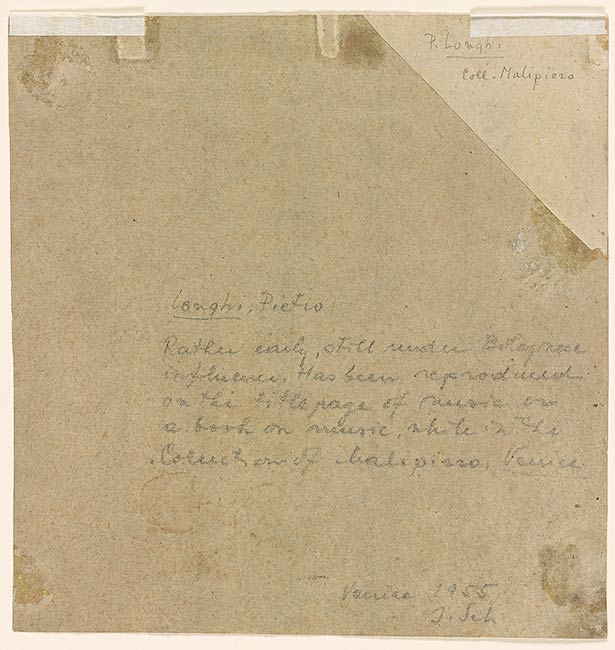 P. Longhi
Coll. Malipiero
Longhi, Pietro
Rather early, still under Bolognese
influence. Has been reproduced
on the titlepage of music or
a book on music, while in the
Collection of Malipiero, Venice
Venice 1955
J. Sch